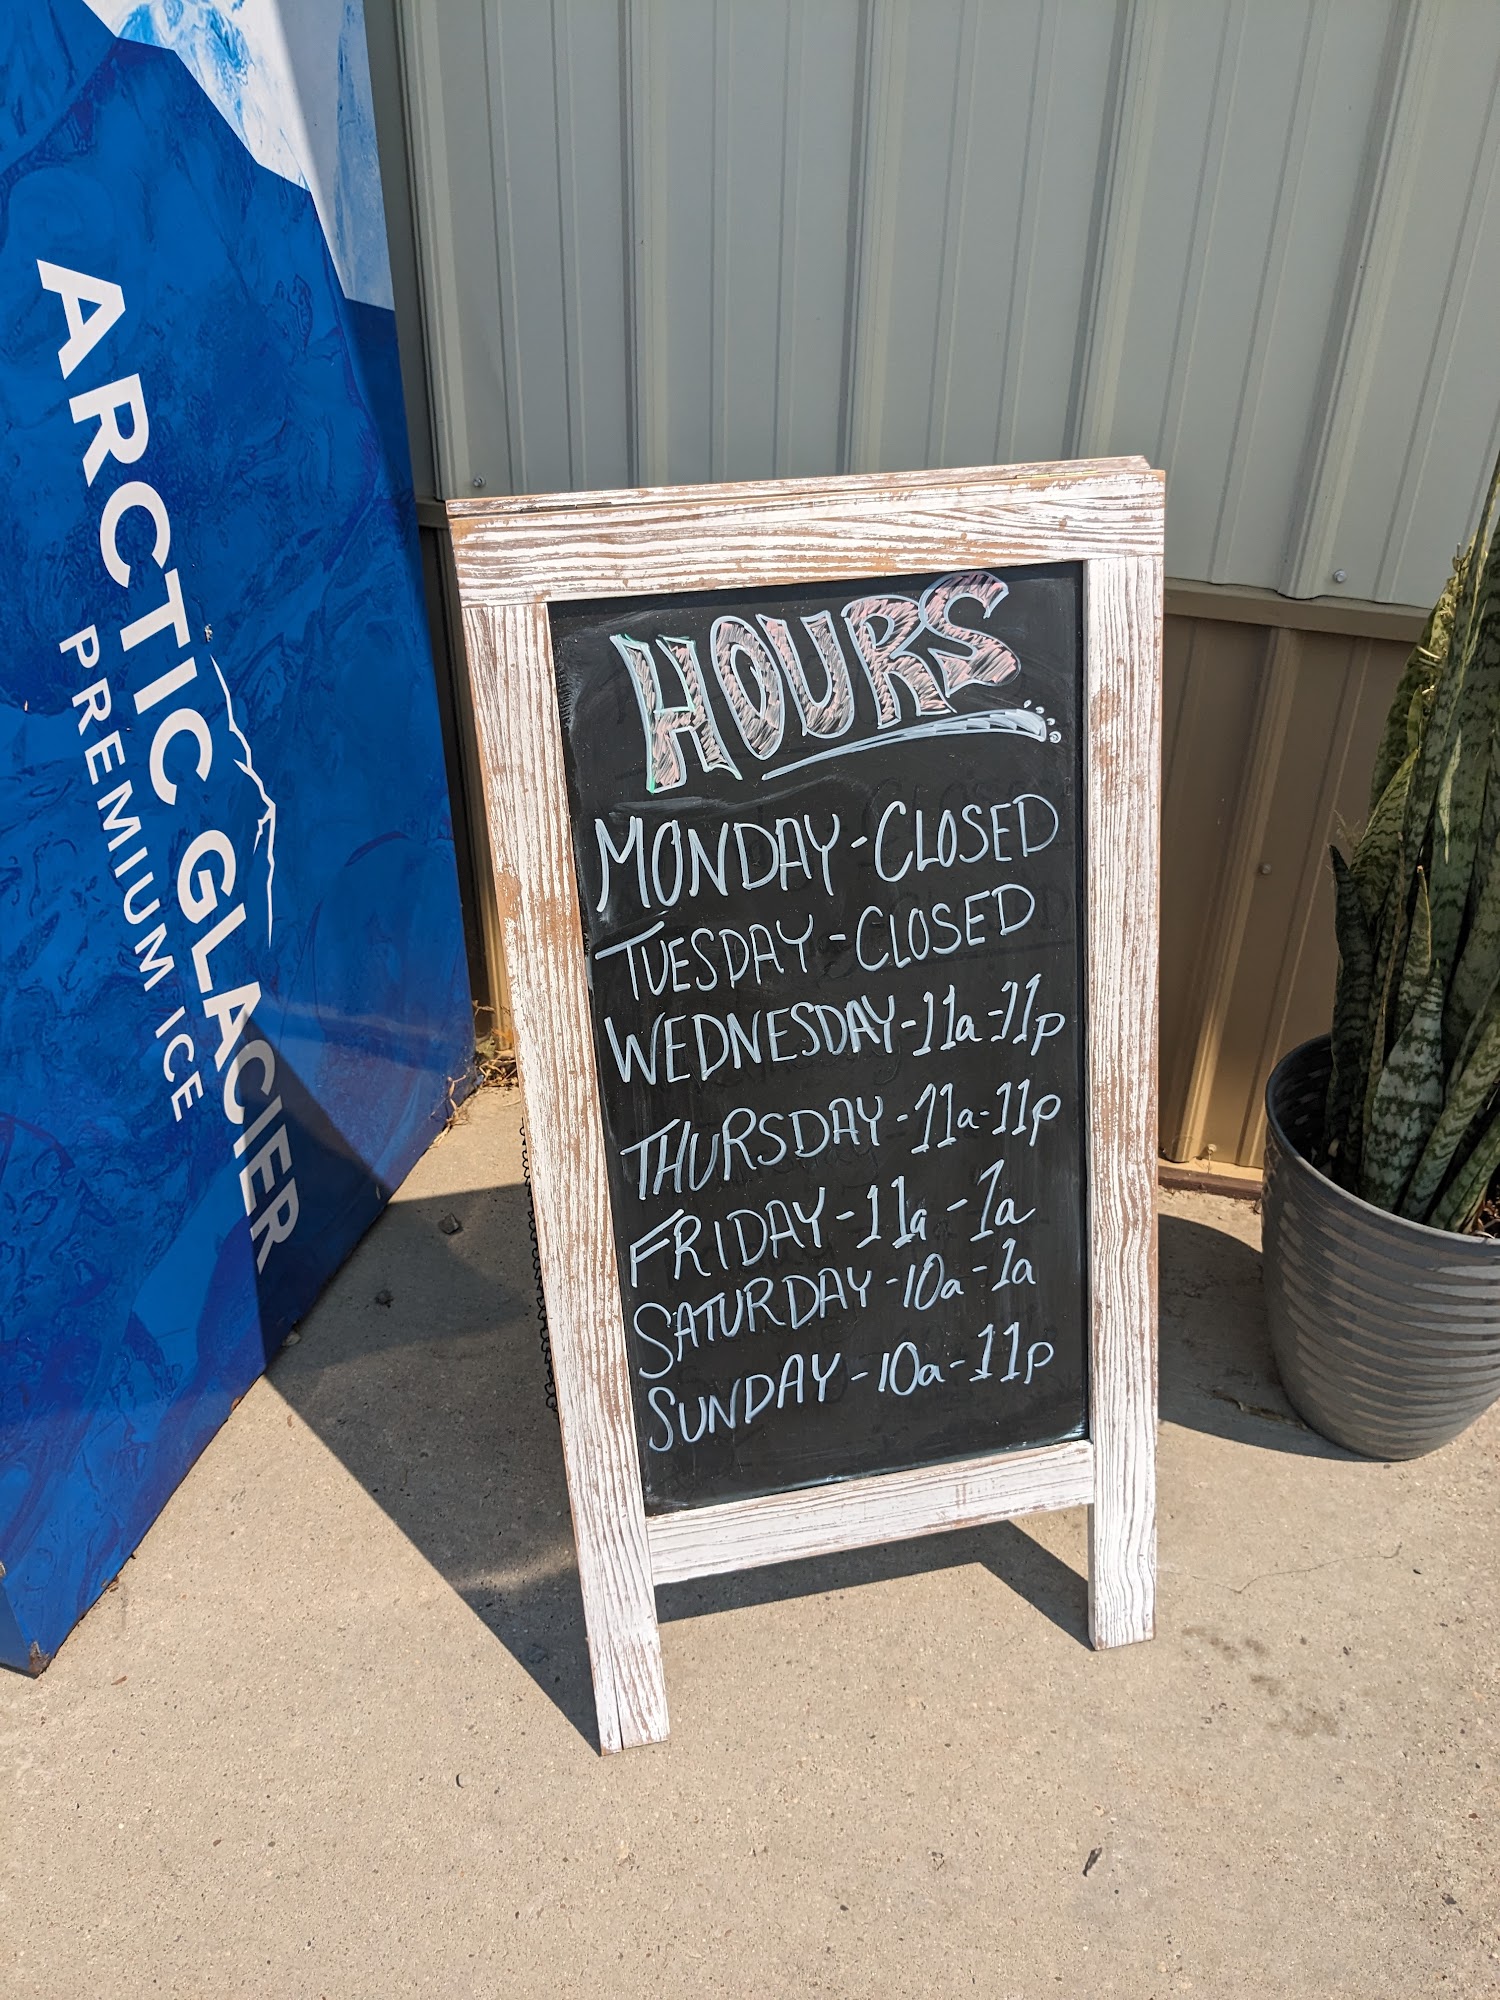 ARCTIC GLACIER
PREMIUM ICE
HOURS
MONDAY - CLOSED
TUESDAY - CLOSED
WEDNESDAY - 11a - 11p
THURSDAY - 11a - 11p
FRIDAY - 11a - 1a
SATURDAY - 10a - 1a
SUNDAY - 10a - 11p